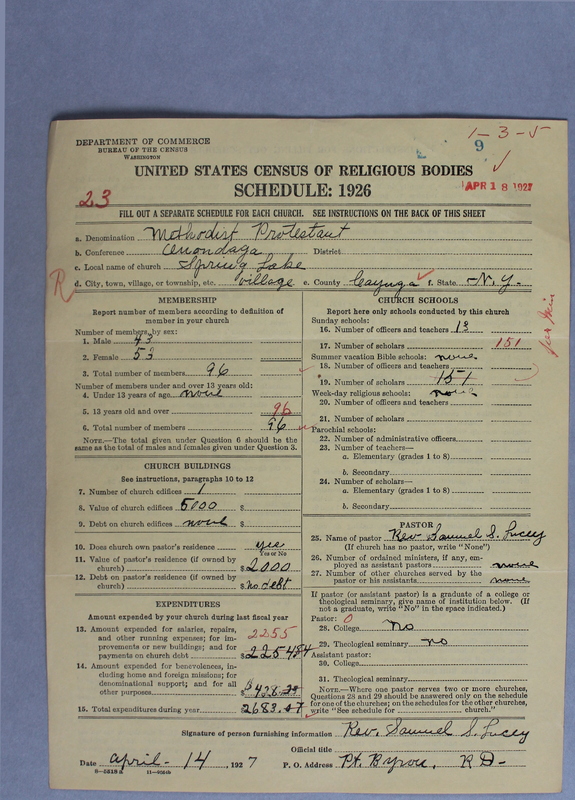 1-3-5
9
DEPARTMENT OF COMMERCE
BUREAU OF THE CENSUS
WASHINGTON
UNITED STATES CENSUS OF RELIGIOUS BODIES
SCHEDULE: 1926
APR 18 1927
23
FILL OUT A SEPARATE SCHEDULE FOR EACH CHURCH. SEE INSTRUCTIONS ON THE BACK OF THIS SHEET
a. Denomination Methodist Protestant
b. Conference Onondaga District
c. Local name of church Spring Lake
R
d. City, town, village, or township, etc. Village e. County Cayuga f. State N.Y.
MEMBERSHIP
Report number of members according to definition of
member in your church
Number of members, by sex:
1. Male 43
2. Female 53
3. Total number of members 96
Number of members under and over 13 years old:
4. Under 13 years of age none
5. 13 years old and over 96
6. Total number of members 96
NOTE.—The total given under Question 6 should be the
same as the total of males and females given under Question 3.
CHURCH BUILDINGS
See instructions, paragraphs 10 to 12
7. Number of church edifices 1
8. Value of church edifices 5000 $
9. Debt on church edifices none $
10. Does church own pastor's residence yes
Yes or No
11. Value of pastor's residence (if owned by
church) $2000
12. Debt on pastor's residence (if owned by
church) $ no debt
EXPENDITURES
Amount expended by your church during last fiscal year
13. Amount expended for salaries, repairs,
and other running expenses; for im-
provements or new buildings; and for
payments on church debt
2255
$2254 84
14. Amount expended for benevolences, in-
cluding home and foreign missions; for
denominational support; and for all
other purposes $428.23
15. Total expenditures during year 2683.07
CHURCH SCHOOLS
Report here only schools conducted by this church
Sunday schools:
16. Number of officers and teachers 13
17. Number of scholars 151
Summer vacation Bible schools: none
18. Number of officers and teachers
19. Number of scholars 151
Week-day religious schools: none
20. Number of officers and teachers
21. Number of scholars
Parochial schools:
22. Number of administrative officers
23. Number of teachers—
a. Elementary (grades 1 to 8)
b. Secondary
24. Number of scholars—
a. Elementary (grades 1 to 8)
b. Secondary
PASTOR
25. Name of pastor Rev. Samuel S. Lucey
(If church has no pastor, write "None")
26. Number of ordained ministers, if any, em-
ployed as assistant pastors none
27. Number of other churches served by the
pastor or his assistants none
If pastor (or assistant pastor) is a graduate of a college or
theological seminary, give name of institution below. (If
not a graduate, write "No" in the space indicated.)
Pastor: 0
28. College No
29. Theological seminary no
Assistant pastor:
30. College
31. Theological seminary
NOTE.—Where one pastor serves two or more churches,
Questions 28 and 29 should be answered only on the schedule
for one of the churches; on the schedules for the other churches,
write "See schedule for church."
Signature of person furnishing information Rev. Samuel S. Lucey
Official title
Date April - 14, 1927 P. O. Address Pt. Byron, R D-
8—5518 a